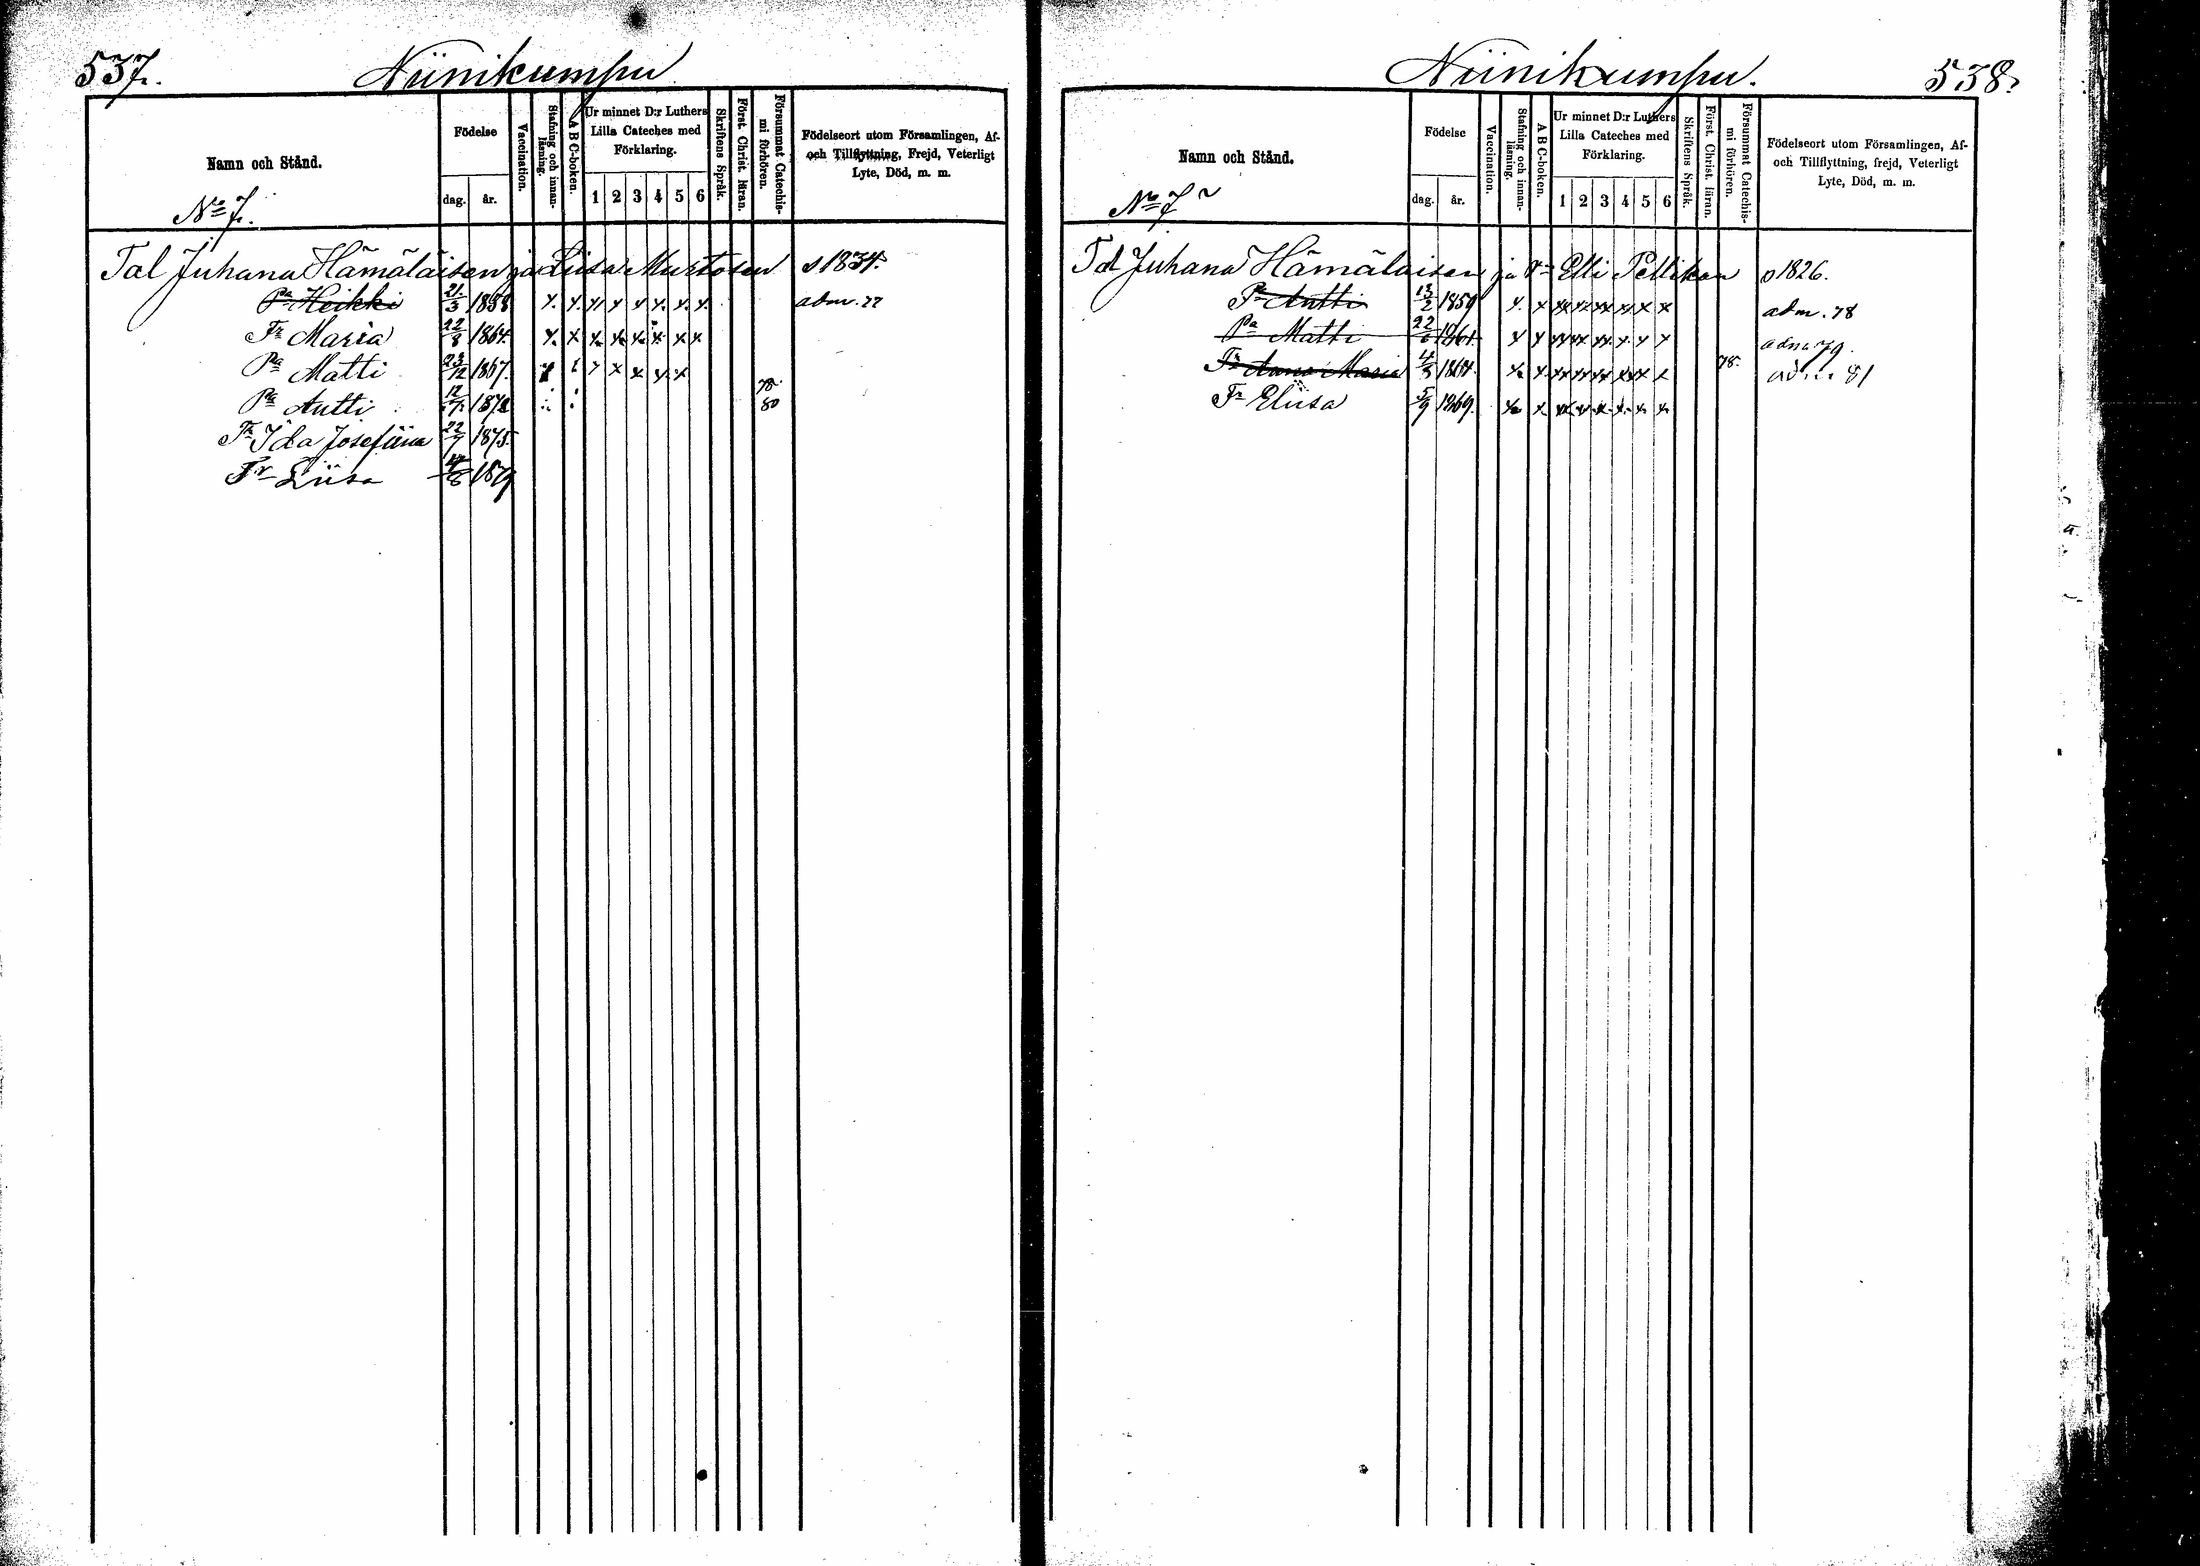 537.
Niinikumpu
Namn och Stånd.
Födelse
dag.
år.
Vaccination.
Stafning och innan-
läsning.
A B C-boken.
Ur minnet D:r Luthers
Lilla Cateches med
Förklaring.
1 2 3 4 5 6
Skriftens Språk.
Först. Christ. läran.
Försummat Catechis-
mi förhören.
Födelseort utom Församlingen, Af-
och Tillflyttning, Frejd, Veterligt
Lyte, Död, m. m.
No 7.
Tal Juhana Hämäläisen ja Liisa Mustosen s 1834.
Pa Heikki 21/3 1858 x. x. x x x x. x. x. adm. 77
Tr Maria 22/8 1864. x. x x. x. x. x x x
Pa Matti 23/12 1867. x x x x x
Pa Antti 12/7 1872 78 80
Tr Ida Josefiina 22/7 1875.
Tr Liisa 1879
Niinikumpu.
538.
Namn och Stånd.
Födelse
dag.
år.
Vaccination.
Stafning och innan-
läsning.
A B C-boken.
Ur minnet D:r Luthers
Lilla Cateches med
Förklaring.
1 2 3 4 5 6
Skriftens Språk.
Först. Christ. läran.
Försummat Catechis-
mi förhören.
Födelseort utom Församlingen, Af-
och Tillflyttning, frejd, Veterligt
Lyte, Död, m. m.
No 7
Tal Juhana Hämäläisen ja vn Elli Pellikan s 1826.
Pa Antti 13/2 1859 x. x xx xx xx x x x adm. 78
Pa Matti 22/6 1861. x x xx xx xx x x x adm 79.
Tr Anna Maria 4/3 1864 x x xx xx xx xx x x 78. adm 81
Tr Eliisa 5/9 1869. x x x x x x x x